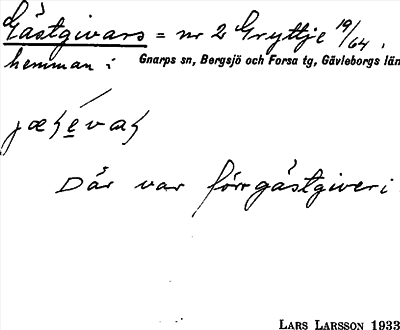 Gästgivars = nr 2 Gryttje 19/64.
hemman:
Gnarps sn, Bergsjö och Forsa tg, Gävleborgs län
Där var förr gästgiveri
LARS LARSSON 1933